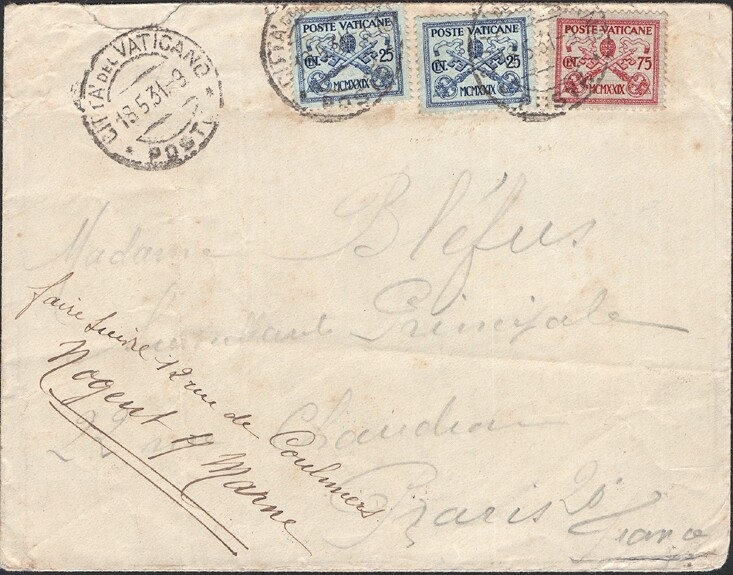 CITTÀ DEL VATICANO
18.5.31-9
* POSTE *
POSTE VATICANE
CENT. 25
MCMXXIX
POSTE VATICANE
CENT. 25
MCMXXIX
POSTE VATICANE
CENT. 75
MCMXXIX
Madame Bléfus
Principale
22 rue
Paris 20e
France
faire suivre 12 rue de Coulmiers
Nogent s/ Marne